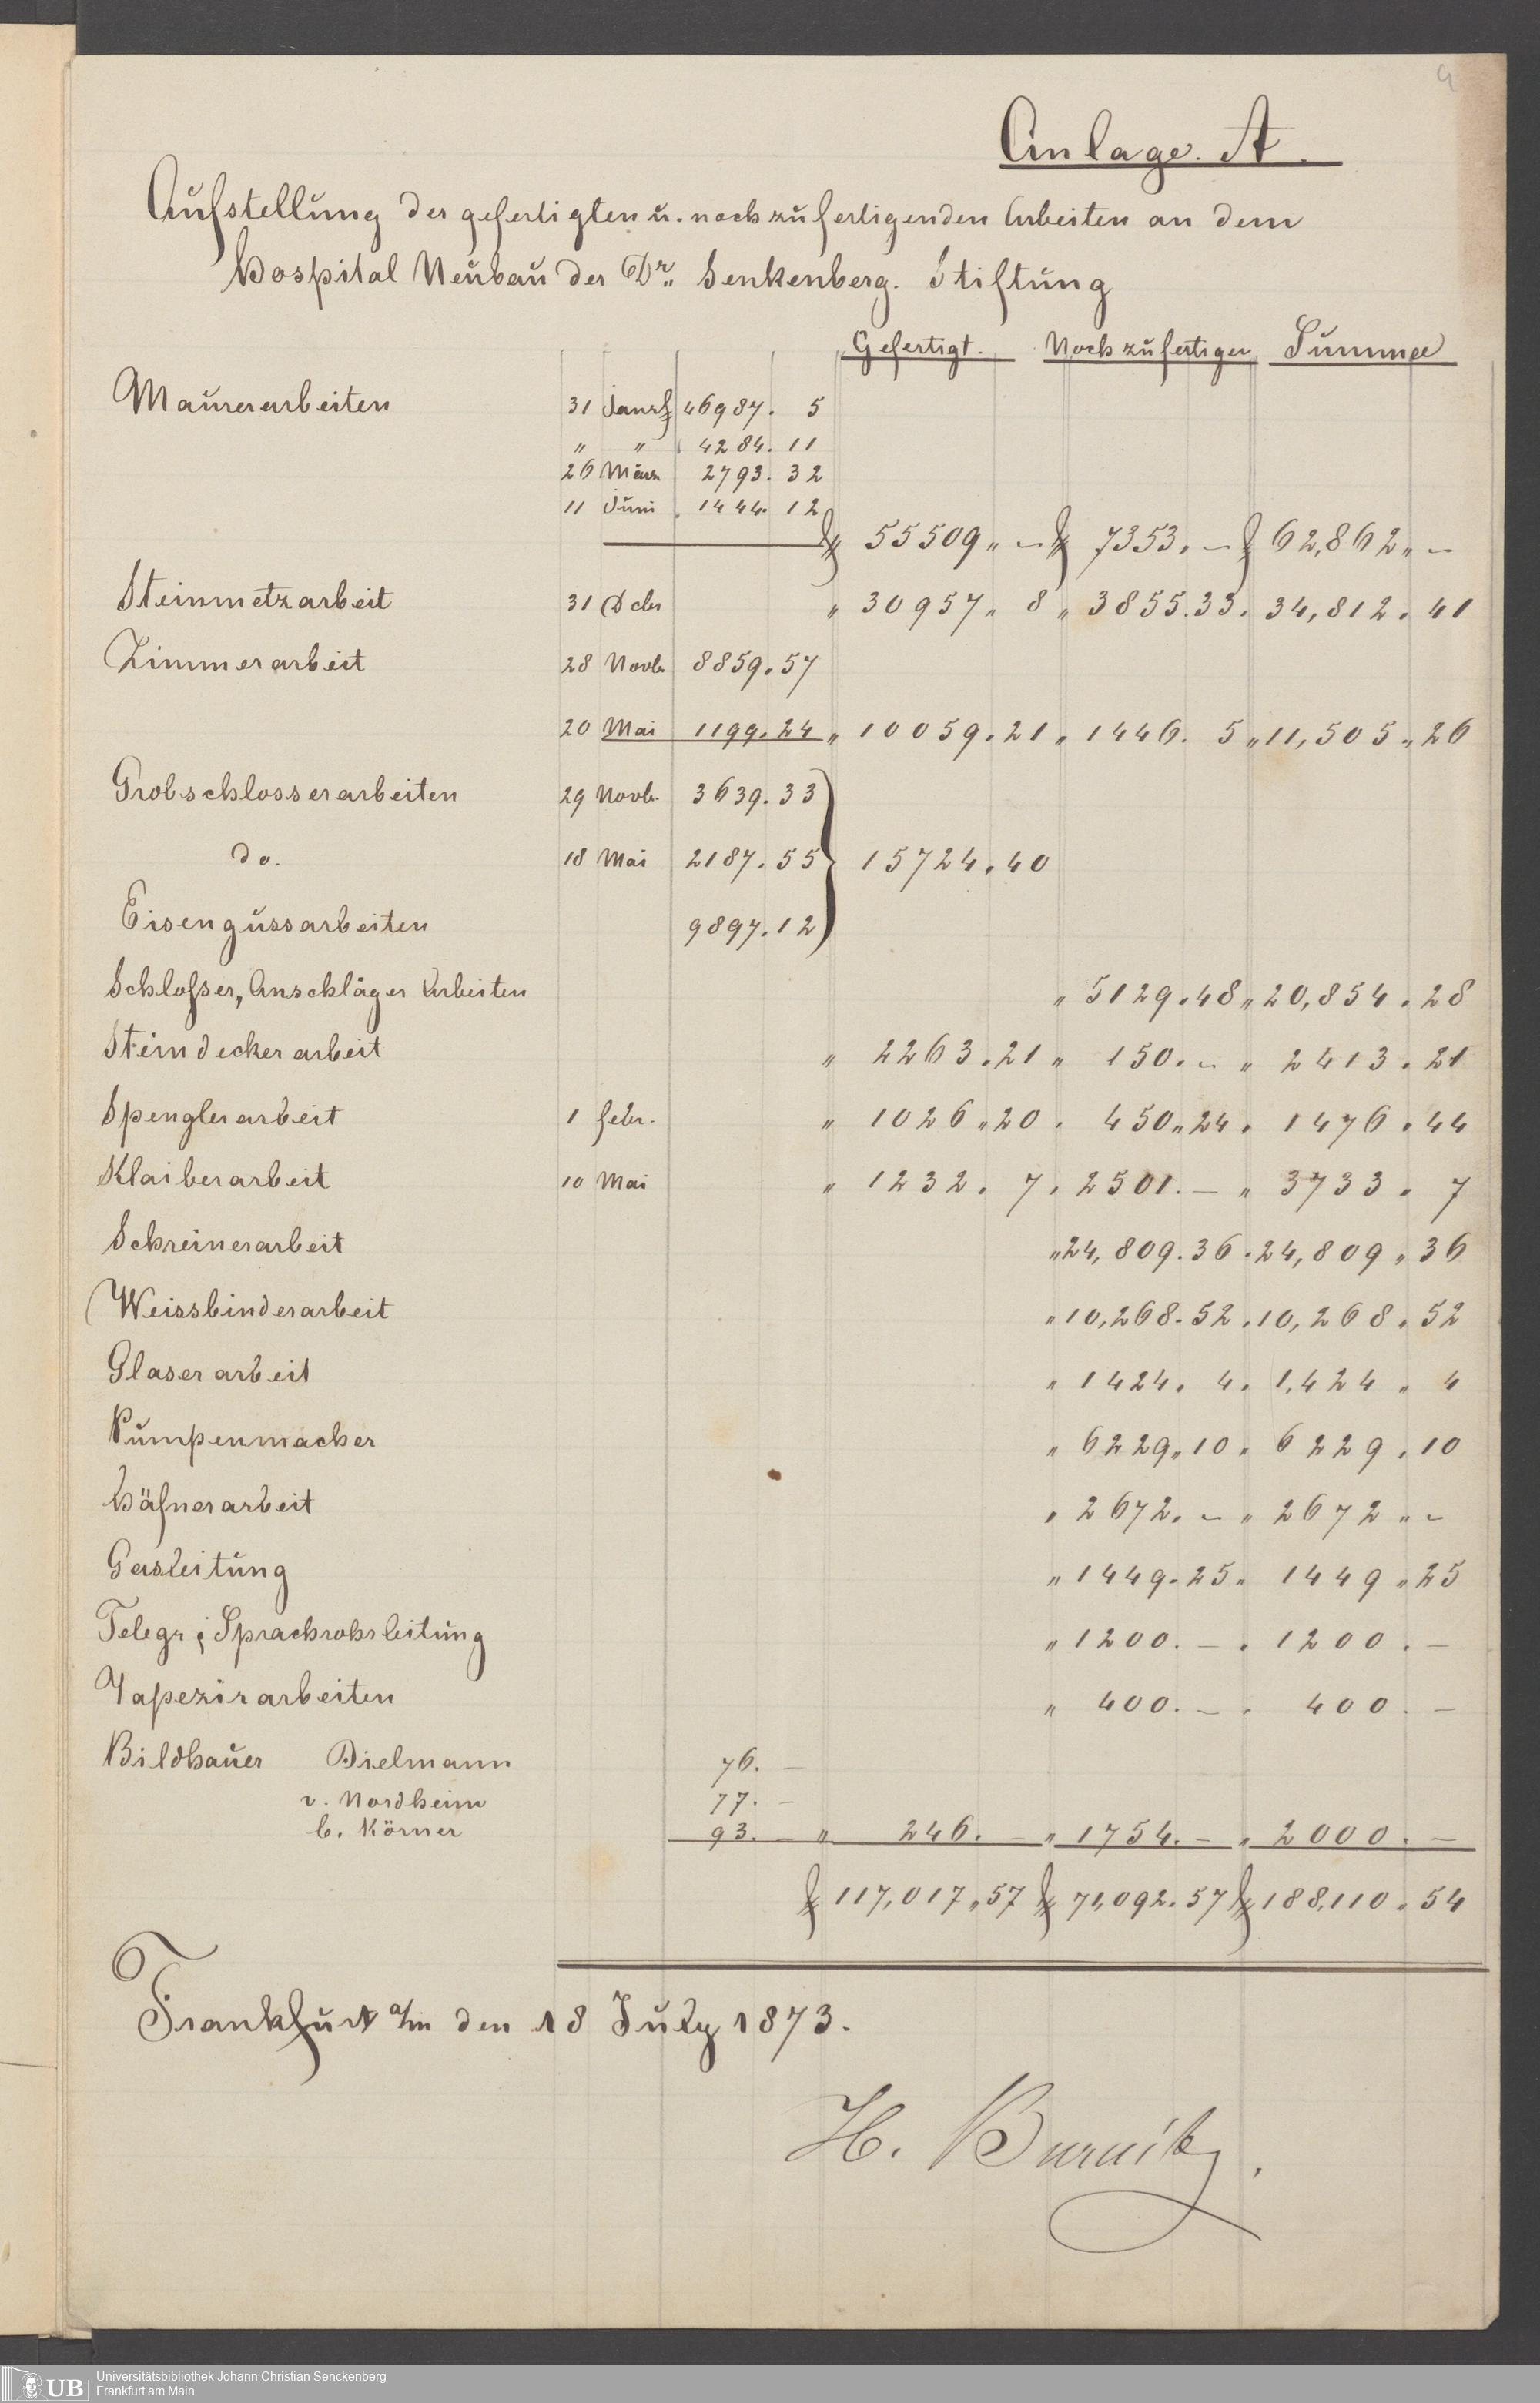 4
Anlage. A.
Aufstellung der gefertigten u. noch zu fertigenden Arbeiten an dem
Hospital Neubau der Dr. Senkenberg. Stiftung
Gefertigt. Noch zu fertigen Summe
Maurerarbeiten 31 Janr f 46987. 5
" " " 4284. 11
26 März 2793. 32
11 Juni 1444. 12
f 55509 " – f 7353. – f 62,862 " –
Steinmetzarbeit 31 Dcbr " 30957 " 8 " 3855. 33. 34,812. 41
Zimmerarbeit 28 Novb. 8859. 57
20 Mai 1199. 24 " 10059. 21 " 1446. 5 " 11,505 " 26
Grobschlosserarbeiten 29 Novb. 3639. 33
do. 18 Mai 2187. 55 15724. 40
Eisengussarbeiten 9897. 12
Schlosser, Anschläger Arbeiten " 5129. 48 " 20,854. 28
Steindeckerarbeit " 2263. 21 " 150. – " 2413. 21
Spenglerarbeit 1 Febr. " 1026 " 20. 450 " 24. 1476. 44
Klaiberarbeit 10 Mai " 1232. 7. 2501. – " 3733. 7
Schreinerarbeit " 24,809. 36. 24,809 " 36
Weissbinderarbeit " 10,268. 52. 10,268. 52
Glaserarbeit " 1424. 4. 1,424 " 4
Pumpenmacher " 6229 " 10. 6229. 10
Häfnerarbeit " 2672. – " 2672 " –
Gasleitung " 1449. 25 " 1449 " 25
Telegr & Sprachrohrleitung " 1200. – . 1200. –
Tapezirarbeiten " 400. – . 400. –
Bildhauer Dielmann 76. –
v. Nordheim 77. –
C. Körner 93. – " 246. – " 1754. – " 2000. –
f 117,017 " 57 f 71,092. 57 f 188,110. 54
Frankfurt a/m den 18 July 1873.
H. Burnitz.
UB Universitätsbibliothek Johann Christian Senckenberg
Frankfurt am Main